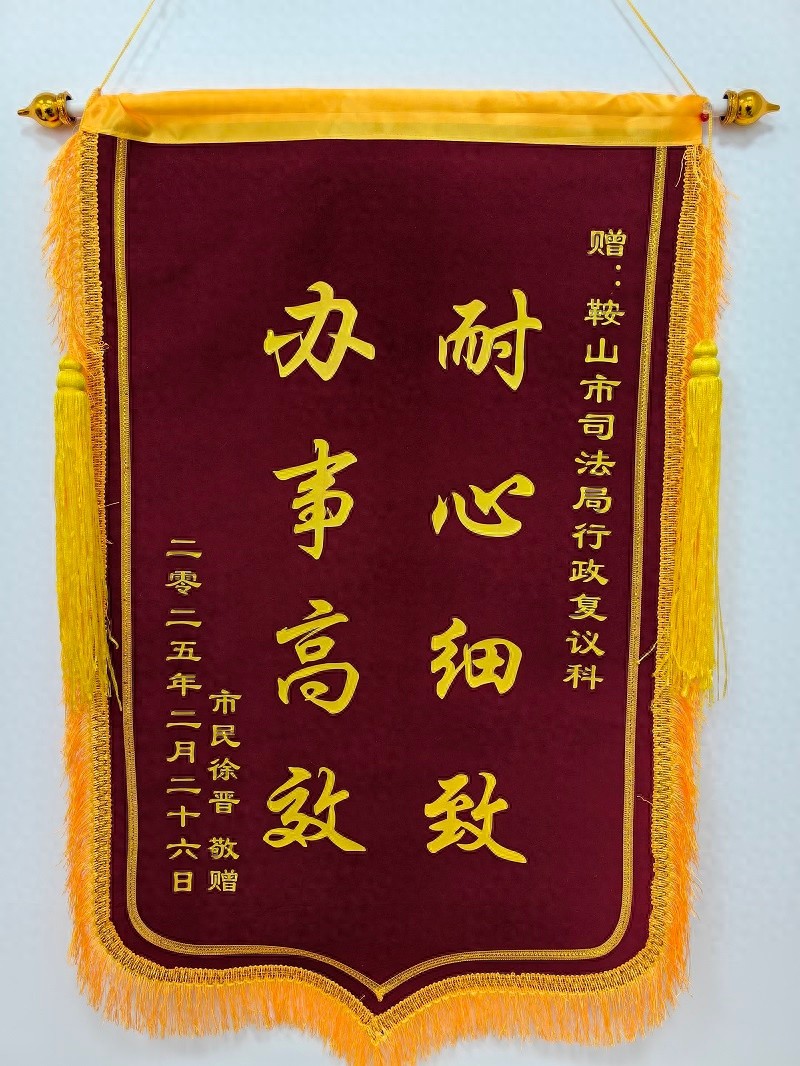 赠：鞍山市司法局行政复议科
耐心细致
办事高效
市民徐晋 敬赠
二零二五年二月二十六日